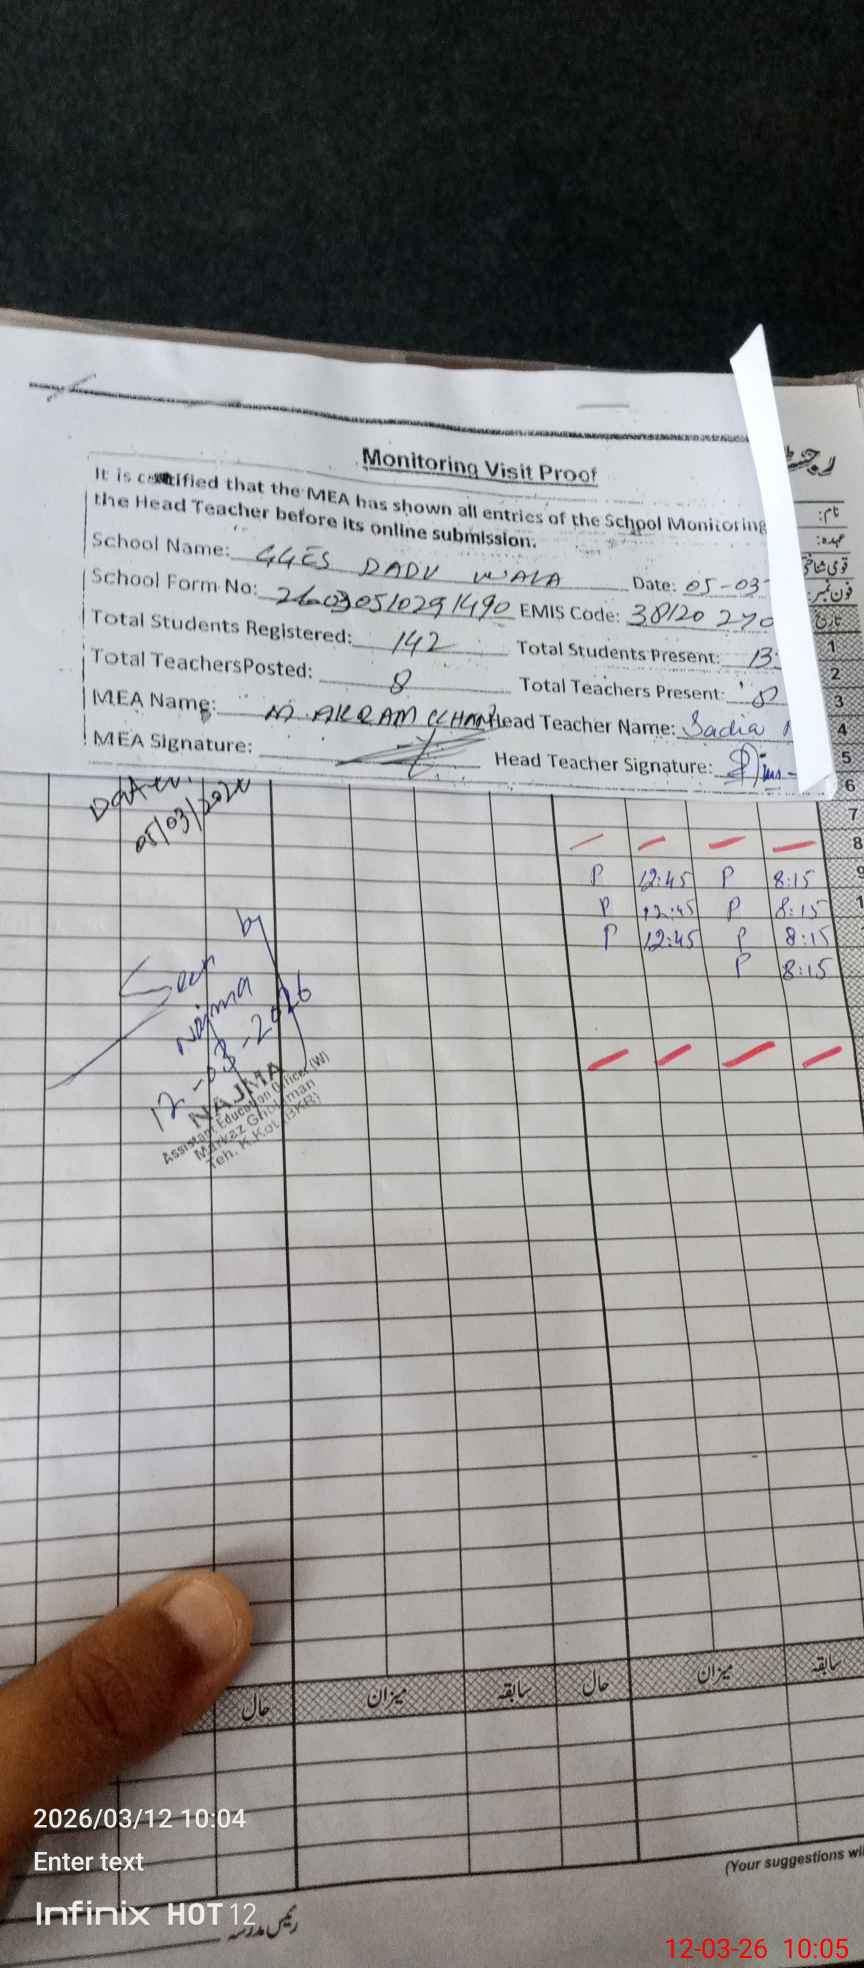 Monitoring Visit Proof
It is certified that the MEA has shown all entries of the School Monitoring
the Head Teacher before its online submission.
School Name: GGES DADU WALA Date: 05-03
School Form No: EMIS Code: 38120 270
Total Students Registered: 142 Total Students Present: 13
Total TeachersPosted: 8 Total Teachers Present: 8
MEA Name: M. AKRAM KHAN Head Teacher Name: Sadia
MEA Signature: Head Teacher Signature:
نام:
عہدہ:
فون نمبر:
تاریخ
1
2
3
4
5
6
7
8
9
1
Dated:
05/03/2026
P 12:45 P 8:15
P 12:45 P 8:15
P 12:45 P 8:15
P 8:15
Seen by
Najma
12-03-2026
NAJMA
Assistant Education Officer (W)
Markaz Ghulaman
Teh. K.Kot (BKR)
حال میزان سابقہ حال میزان سابقہ
(Your suggestions wil
رئیس مدرسہ
2026/03/12 10:04
Enter text
Infinix HOT 12
12-03-26 10:05